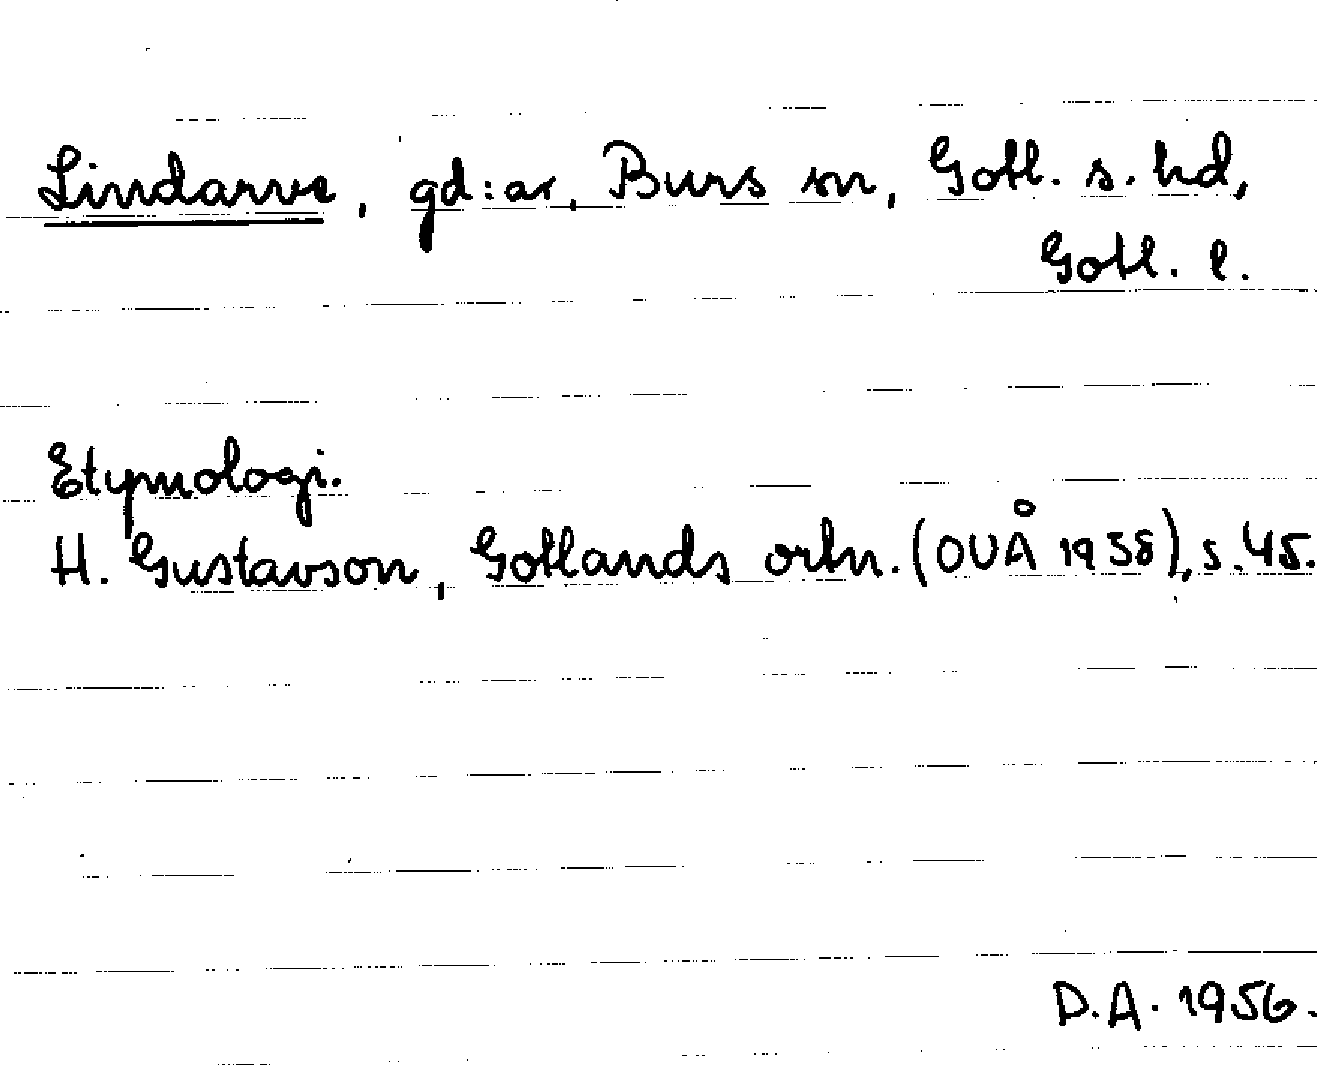 Lindarve, gd:ar, Burs sn, Gotl. s. hd,
Gotl. l.
Etymologi.
H. Gustavson, Gotlands ortn. (OUÅ 1938), s. 45.
D.A. 1956.